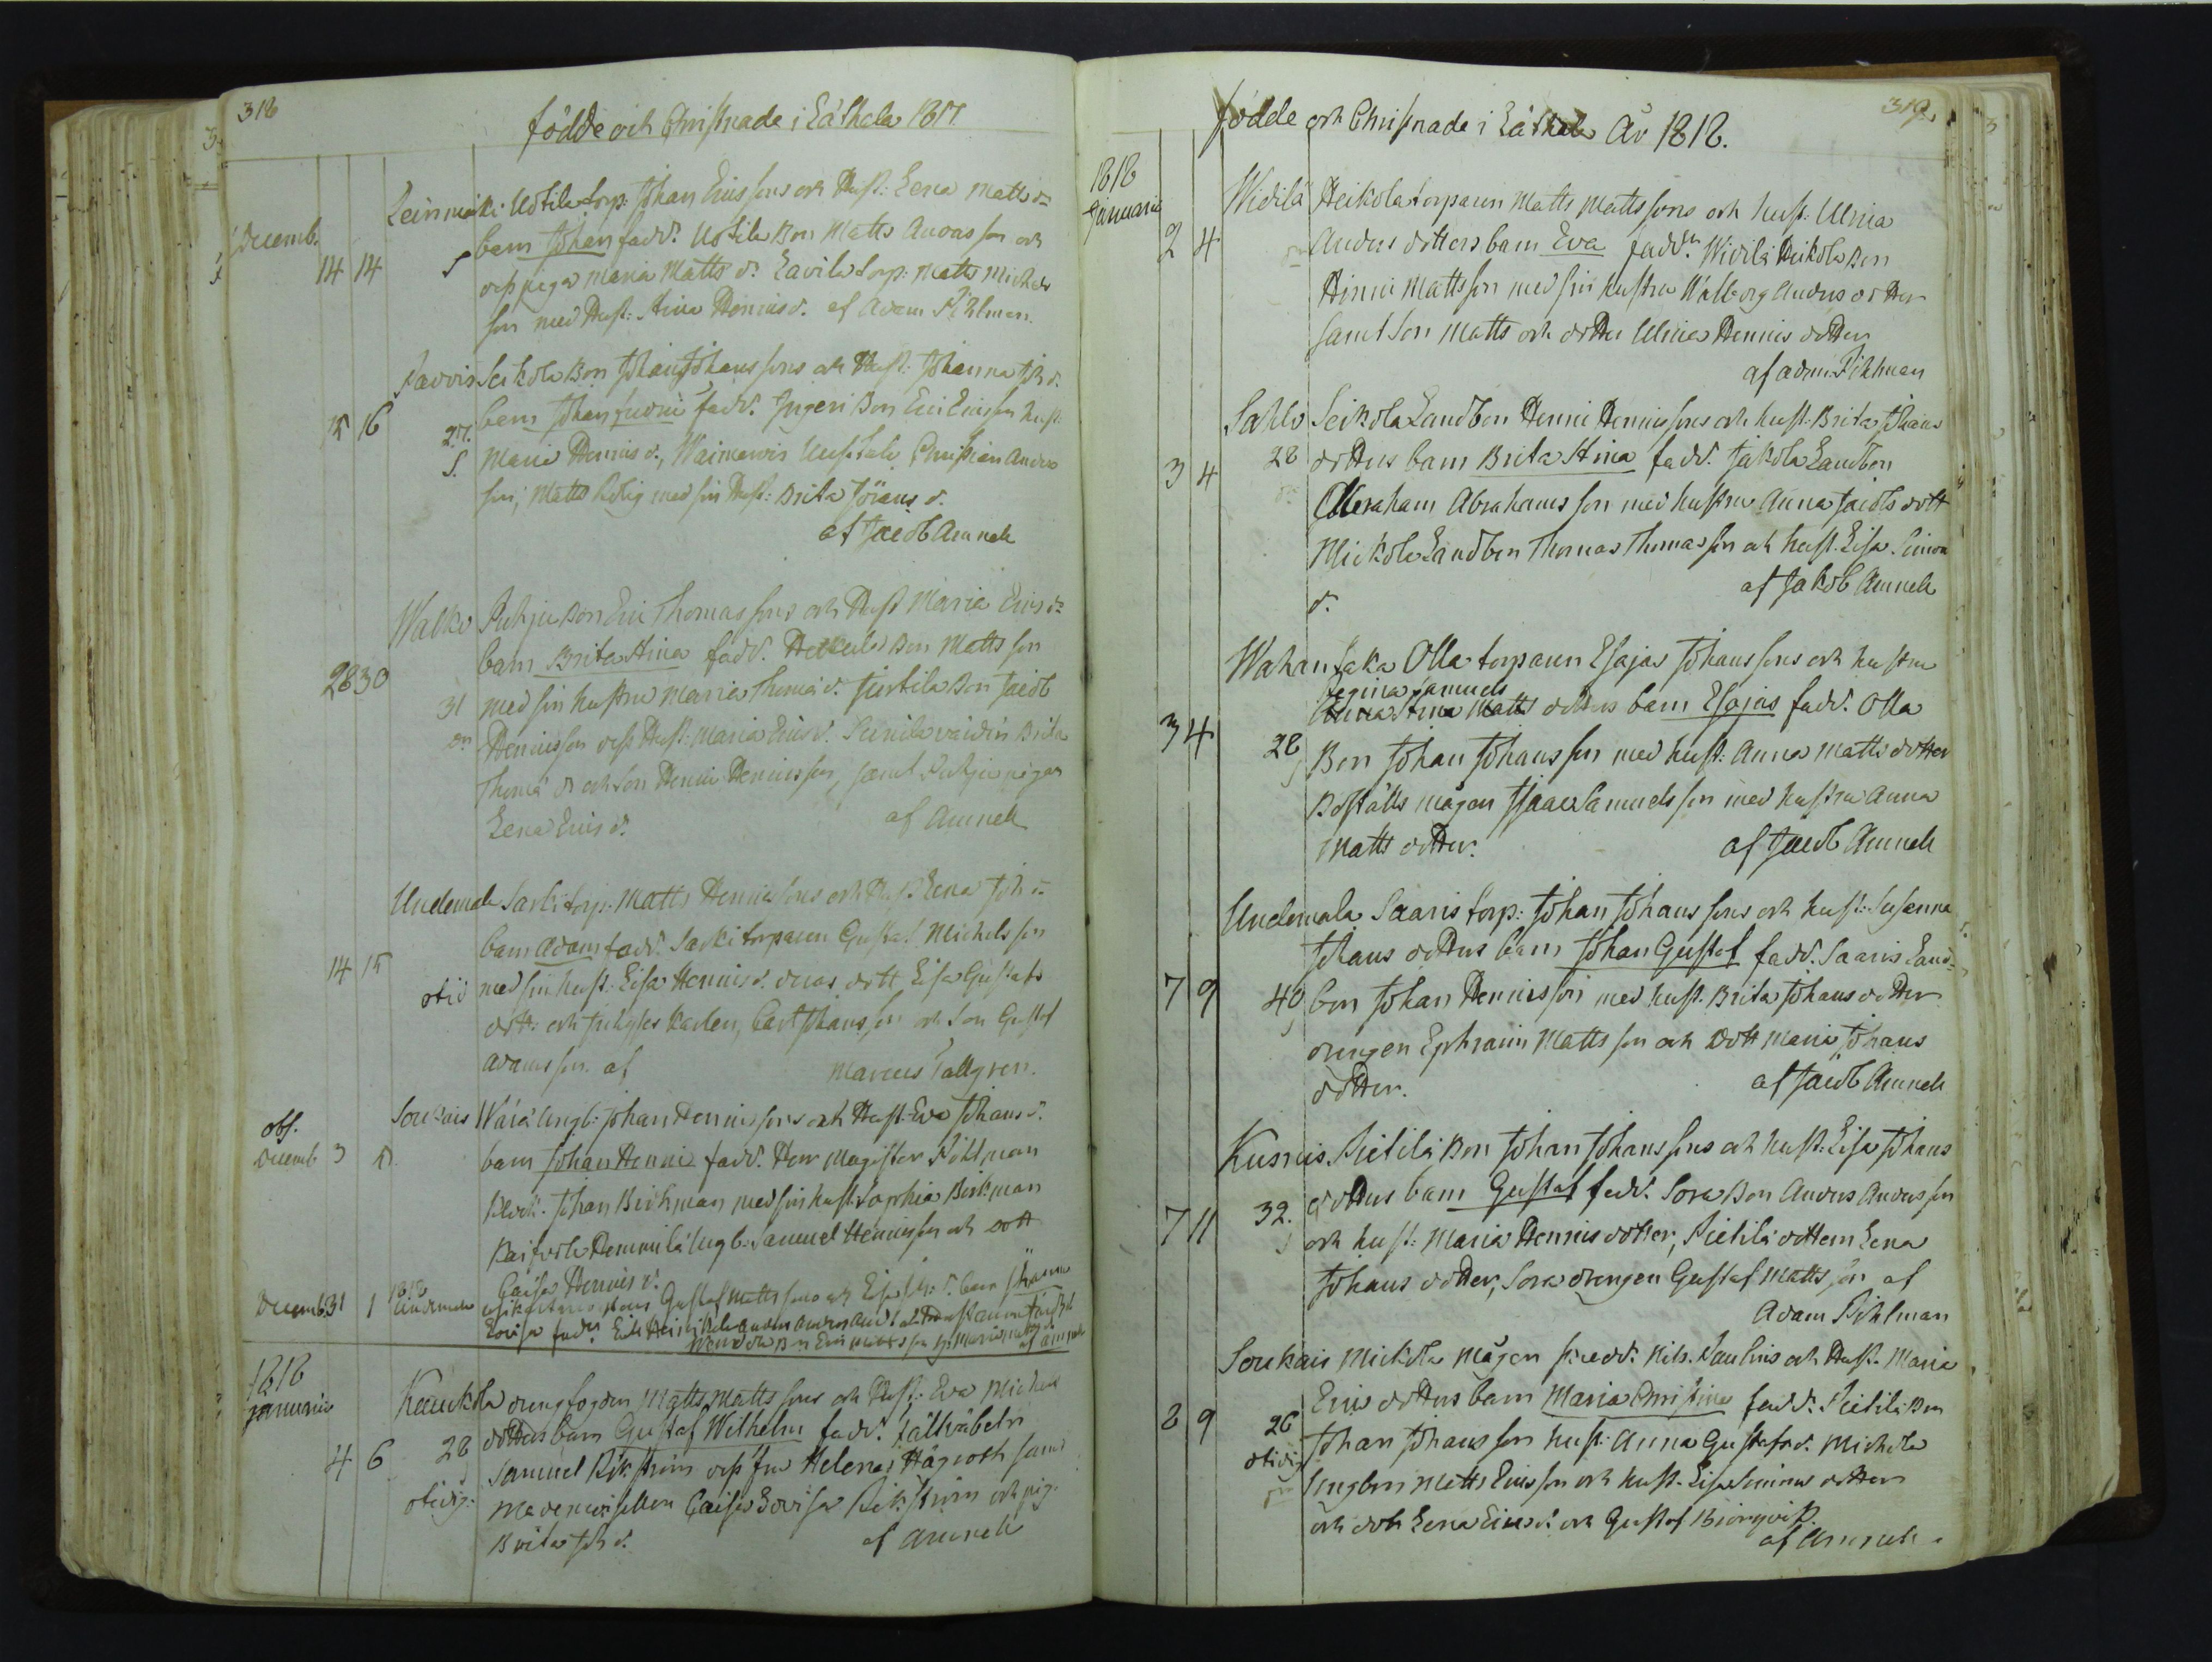 318
födde och Christnade i Låthala 1817
Decemb.
Leinmäki Uotila torp: Johan Ericssons och Hust: Lena Matts dr
14 14 S barn Johan fadd. Uotila Bon Matts Andersson och
dess piga Maria Matts d. Lavila torp: Matts Michels
son med Hust: Stina Henrics d. af Adam Pihlman
Seikola Bon Johan Johanssons och Hust: Johanna Joh d.
15 16 27. barn Johan fadd. Ingeri Bon Eric Ericsson hust.
S. Maria Henrics d., Christian Anders
son, Matts med sin Hust: Brita Görans d.
af Jacob Amnell
Walko Puhju Bon Eric Thomassons och Hust Maria Erics dr
28 30 barn Brita Stina fadd. Heikola Bon Mattsson
31 med sin hustru Maria Thomæ d. Bon Jacob
Henricsson dess Hust: Maria Erics d. Brita
Thomæ d och Son Henric Henricsson, samt pigan
Lena Erics d. af Amnell
Undemala Sarki torp. Matts Henricssons och Hust Lena Joh d
barn Adam fadd. Sarki torparen Gustaf Michelsson
14 15 otid med sin hust. Lisa Henrics d. deras dott Lisa Gustafs
dott: och karlen, Carl Johansson och Son Gustaf
Adamsson. af Marcus Tallgren.
obs. Soukais Wärä Ungb: Johan Henricssons och Hust: Eva Johans d.
Decemb 3 5 barn Johan Henric fadd. Herr Magister Pihlman
klock. Johan Birkman med sin hust. Sophia Birkman
Hemmilä Ungb: Samuel Henricsson och dott
Caisa Henrics d.
Decemb. 31 1 1818 Undemala Gustaf Mattssons och Lisa Joh. d. barn Johanna
Lovisa fadd.
af Amnell
1818
Januarii
Kaukola drengfogden Matts Mattssons och Hust: Eva Michels
4 6 28 dotters barn Gustaf Wilhelm fadd. fältväbeln
Samuel Rikström dess fru Helena Hägroth samt
otidig. Mademoisellen Caisa Lovisa Rikström och pig.
Brita Joh d. af Amnell
319.
födde och Christnade i Låthala År 1818.
1818
Januarii
Widilä Heikola torparen Matts Mattssons och hust. Ulrica
2 4 Anders dotters barn Eva fadd.r Widilä Heikola Bon
Henric Mattsson med sin hustru Walborg Anders dotter
samt Son Matts och dotter Ulrica Henrics dotter
af Adam Pihlman
Sahlo Seikola Landbon Henric Henricssons och hust. Brita Johans
3 4 28 dotters barn Brita Stina fadd. Jakola Landbon
Abraham Abrahamsson med hustru Anna Jacobs dott
Mickola Landbon Thomas Thomasson och hust. Lisa Simons
d. af Jakob Amnell
Wahantaka Olla torparen Esajas Johanssons och hustru
Regina Samuels
Anna Stina Matts dotters barn Esajas fadd. Olla
3 4 28 Bon Johan Johansson med hust: Anna Matts dotter
Boställs mågen Isaac Samuelsson med hustru Anna
Matts dotter. af Jacob Amnell
Undemala Saaris torp: Johan Johanssons och hust: Susanna
Johans dotters barn Johan Gustaf fadd. Saaris Land-
7 9 40 bon Johan Henricsson med hust. Brita Johans dotter
drengen Ephraim Mattsson och Dott Maria Johans
dotter. af Jacob Amnell
Kusnis Pietilä Bon Johan Johanssons och hust: Lisa Johans
7 11 32. dotters barn Gustaf fadd. Sora Bon Anders Andersson
och hust: Maria Henrics dotter, Pietilä dottern Lena
Johans dotter, Sora drengen Gustaf Mattsson af
Adam Pihlman
Soukais Mickola Mågen Nils Paulins och Hust. Maria
Erics dotters barn Maria Christina fadd. Pietilä Bon
8 9 26 Johan Johansson hust: Anna Gustafs d. Mickola
otidig Ungbon Matts Ericsson och hust. Lisa Simons dotter
och dott Lena Erics d. och Gustaf Björqvist.
af Amnell